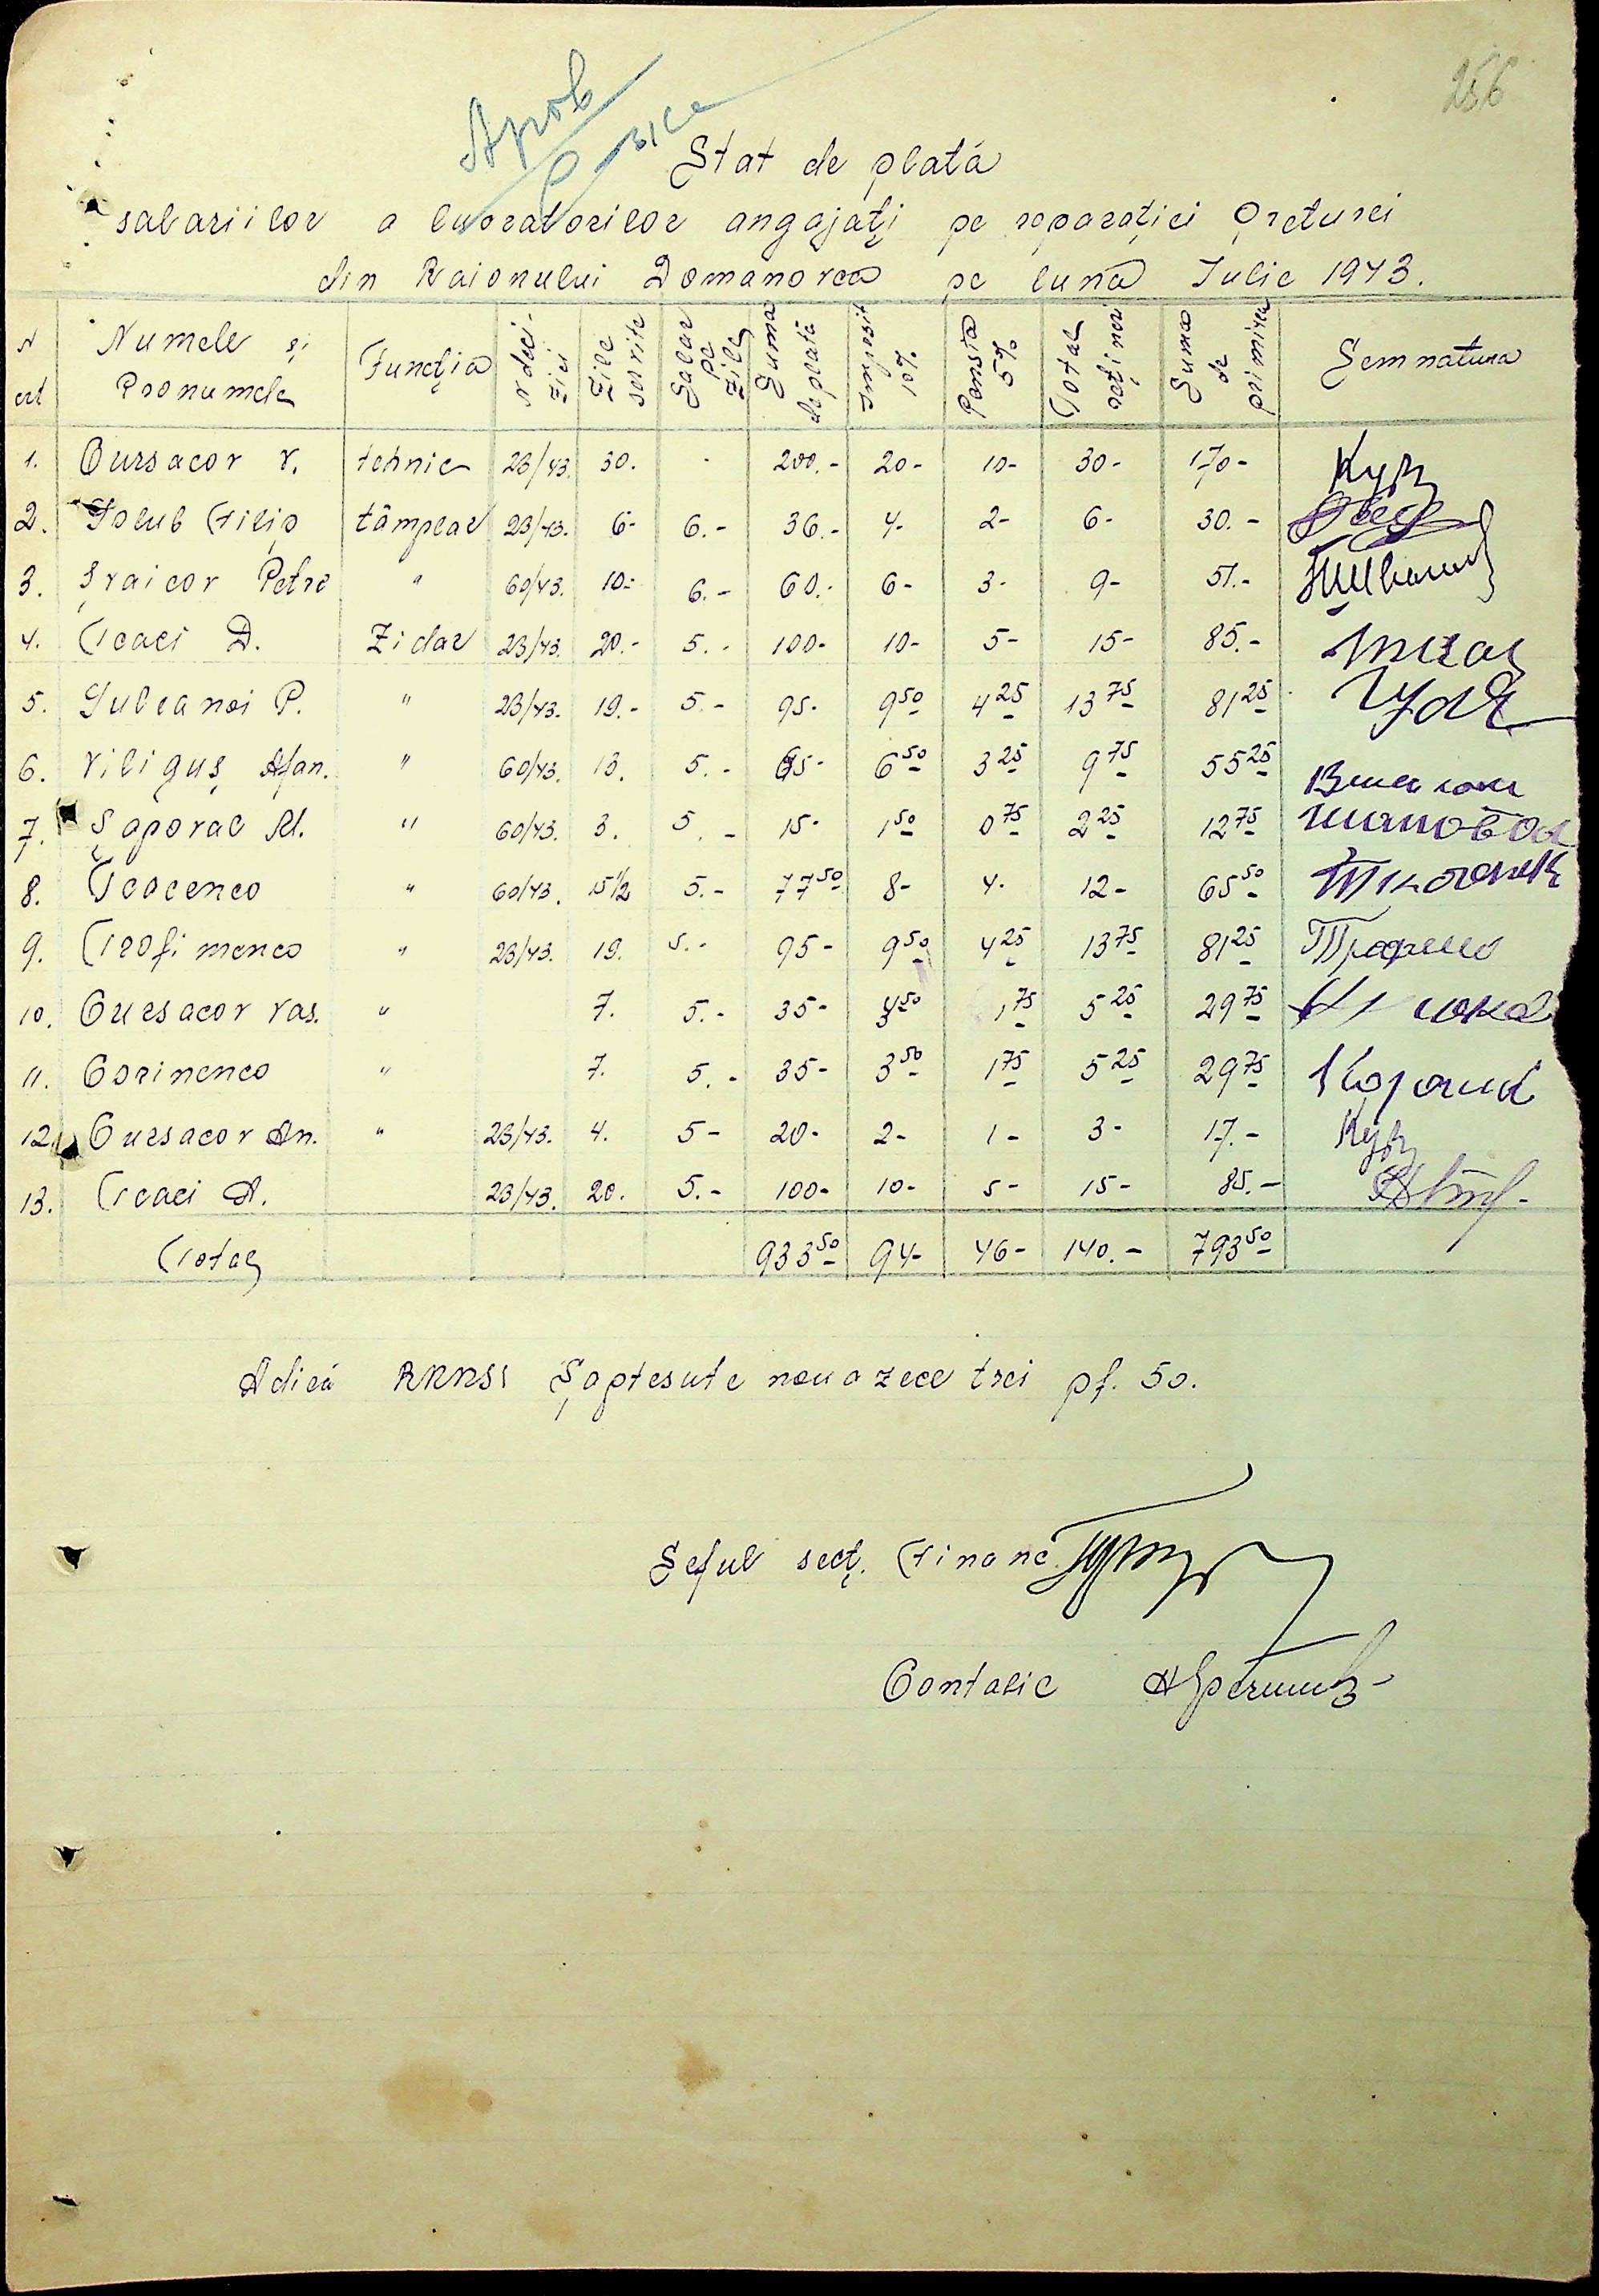 256
Aprob
Stat de plată
salariilor a lucratorilor angajați pe reparației Preturei
din Raionului Domanovca pe luna Iulie 1943.
N crt Numele și Pronumele Funcția N decizici Zile servite Salar pe zile Suma de plată Impozit 10% Pensia 5% Total rețineri Suma de primirea Semnatura
1. Cursacov V. tehnic 23/43. 30. - 200.- 20- 10- 30- 170-
2. Golub Filip tâmplar 23/43. 6- 6.- 36.- 4- 2- 6- 30.-
3. Șvaicov Petre " 60/43. 10- 6.- 60.- 6- 3- 9- 51.-
4. Tcaci D. Zidar 23/43. 20.- 5.- 100- 10- 5- 15- 85.-
5. Sulcanoi P. " 23/43. 19.- 5.- 95- 9 50 4 25 13 75 81 25
6. Viliguș Afan. " 60/43. 13. 5.- 65- 6 50 3 25 9 75 55 25
7. Șapoval " 60/43. 3. 5.- 15- 1 50 0 75 2 25 12 75
8. Tcacenco " 60/43. 15 1/2 5.- 77 50 8- 4- 12- 65 50
9. Trofimenco " 23/43. 19. 5.- 95- 9 50 4 25 13 75 81 25
10. Cursacov Vas. " 7. 5.- 35- 3 50 1 75 5 25 29 75
11. Corinenco " 7. 5.- 35- 3 50 1 75 5 25 29 75
12. Cursacov An. " 23/43. 4. 5- 20- 2- 1- 3- 17.-
13. Tcaci A. 23/43. 20. 5.- 100- 10- 5- 15- 85.-
Total 933 50 94- 46- 140.- 793 50
Adică RKKS Șaptesute nouazece trei pf. 50.
Șeful secț. Financ.
Contabil